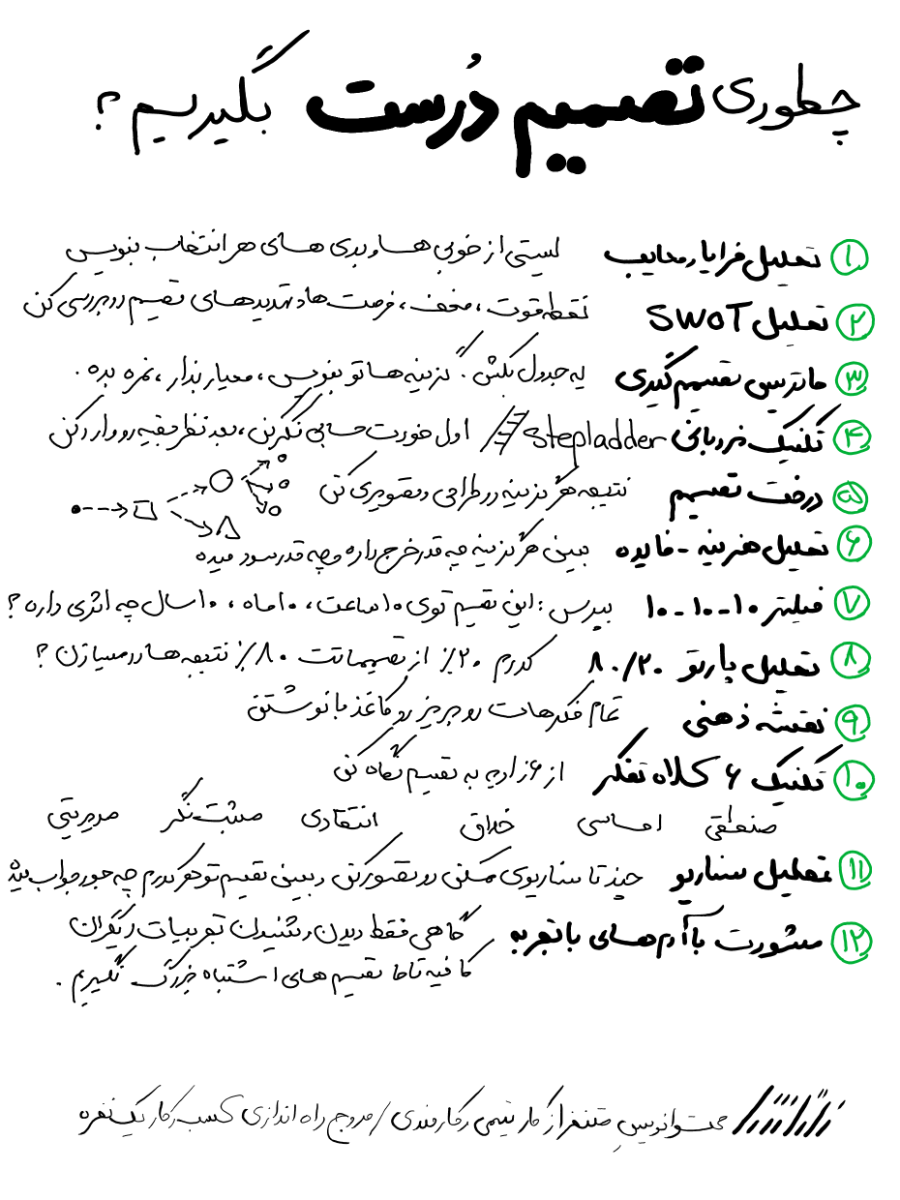 چطوری تصمیم دُرست بگیریم؟
۱ تحلیل مزایا و معایب لیستی از خوبی ها و بدی های هر انتخاب بنویس
۲ تحلیل SWOT نقطه قوت، ضعف، فرصت ها و تهدیدهای تصمیم رو بررسی کن
۳ ماتریس تصمیم گیری یه جدول بکش. گزینه هاتو بنویس، معیار بذار، نمره بده.
۴ تکنیک نردبانی Stepladder اول خودت حسابی فکر کن، بعد نظر بقیه رو وارد کن
۵ درخت تصمیم نتیجه هر گزینه رو طراحی و تصویری کن
۶ تحلیل هزینه - فایده ببینی هر گزینه چه قدر خرج داره و چه قدر سود میده
۷ فیلتر ۱۰-۱۰-۱۰ بپرس: این تصمیم توی ۱۰ ساعت، ۱۰ ماه، ۱۰ سال چه اثری داره؟
۸ تحلیل پارتو ۸۰/۲۰ کدوم ۲۰٪ از تصمیماتت ۸۰٪ نتیجه ها رو میسازن؟
۹ نقشه ذهنی تمام فکرهات رو بریز رو کاغذ با نوشتن
۱۰ تکنیک ۶ کلاه تفکر از ۶ زاویه به تصمیم نگاه کن
منطقی احساسی خلاق انتقادی مثبت نگر مدیریتی
۱۱ تحلیل سناریو چند تا سناریوی ممکن رو تصور کن و ببینی تصمیم تو هر کدوم چه جور جواب میده
۱۲ مشورت با آدم‌های با تجربه گاهی فقط دیدن و شنیدن تجربیات دیگران
کافیه تا ما تصمیم های اشتباه بزرگ نگیریم.
محتوانویسِ متنفر از کار تیمی و کارمندی / مروج راه اندازی کسب و کار یک نفره